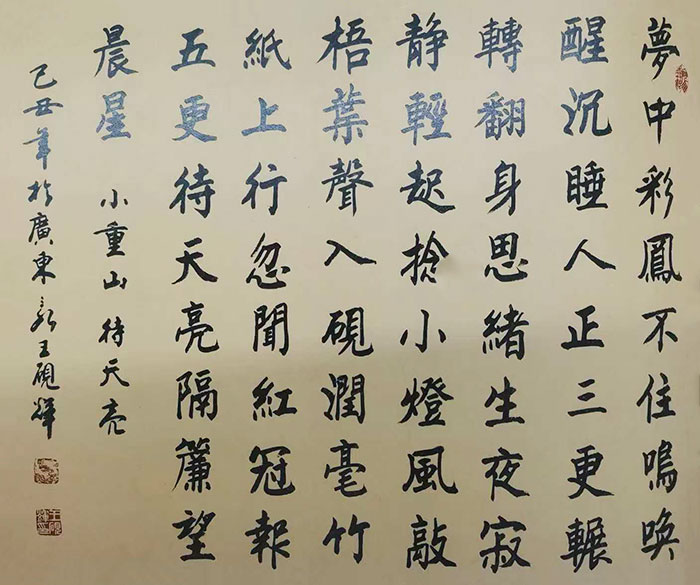 夢中彩鳳不住鳴喚
醒沉睡人正三更輾
轉翻身思緒生夜寂
静輕起捻小燈風敲
梧葉聲入硯潤毫竹
紙上行忽聞紅冠報
五更待天亮隔簾望
晨星 小重山 待天亮
己丑年於廣東 王硯輝